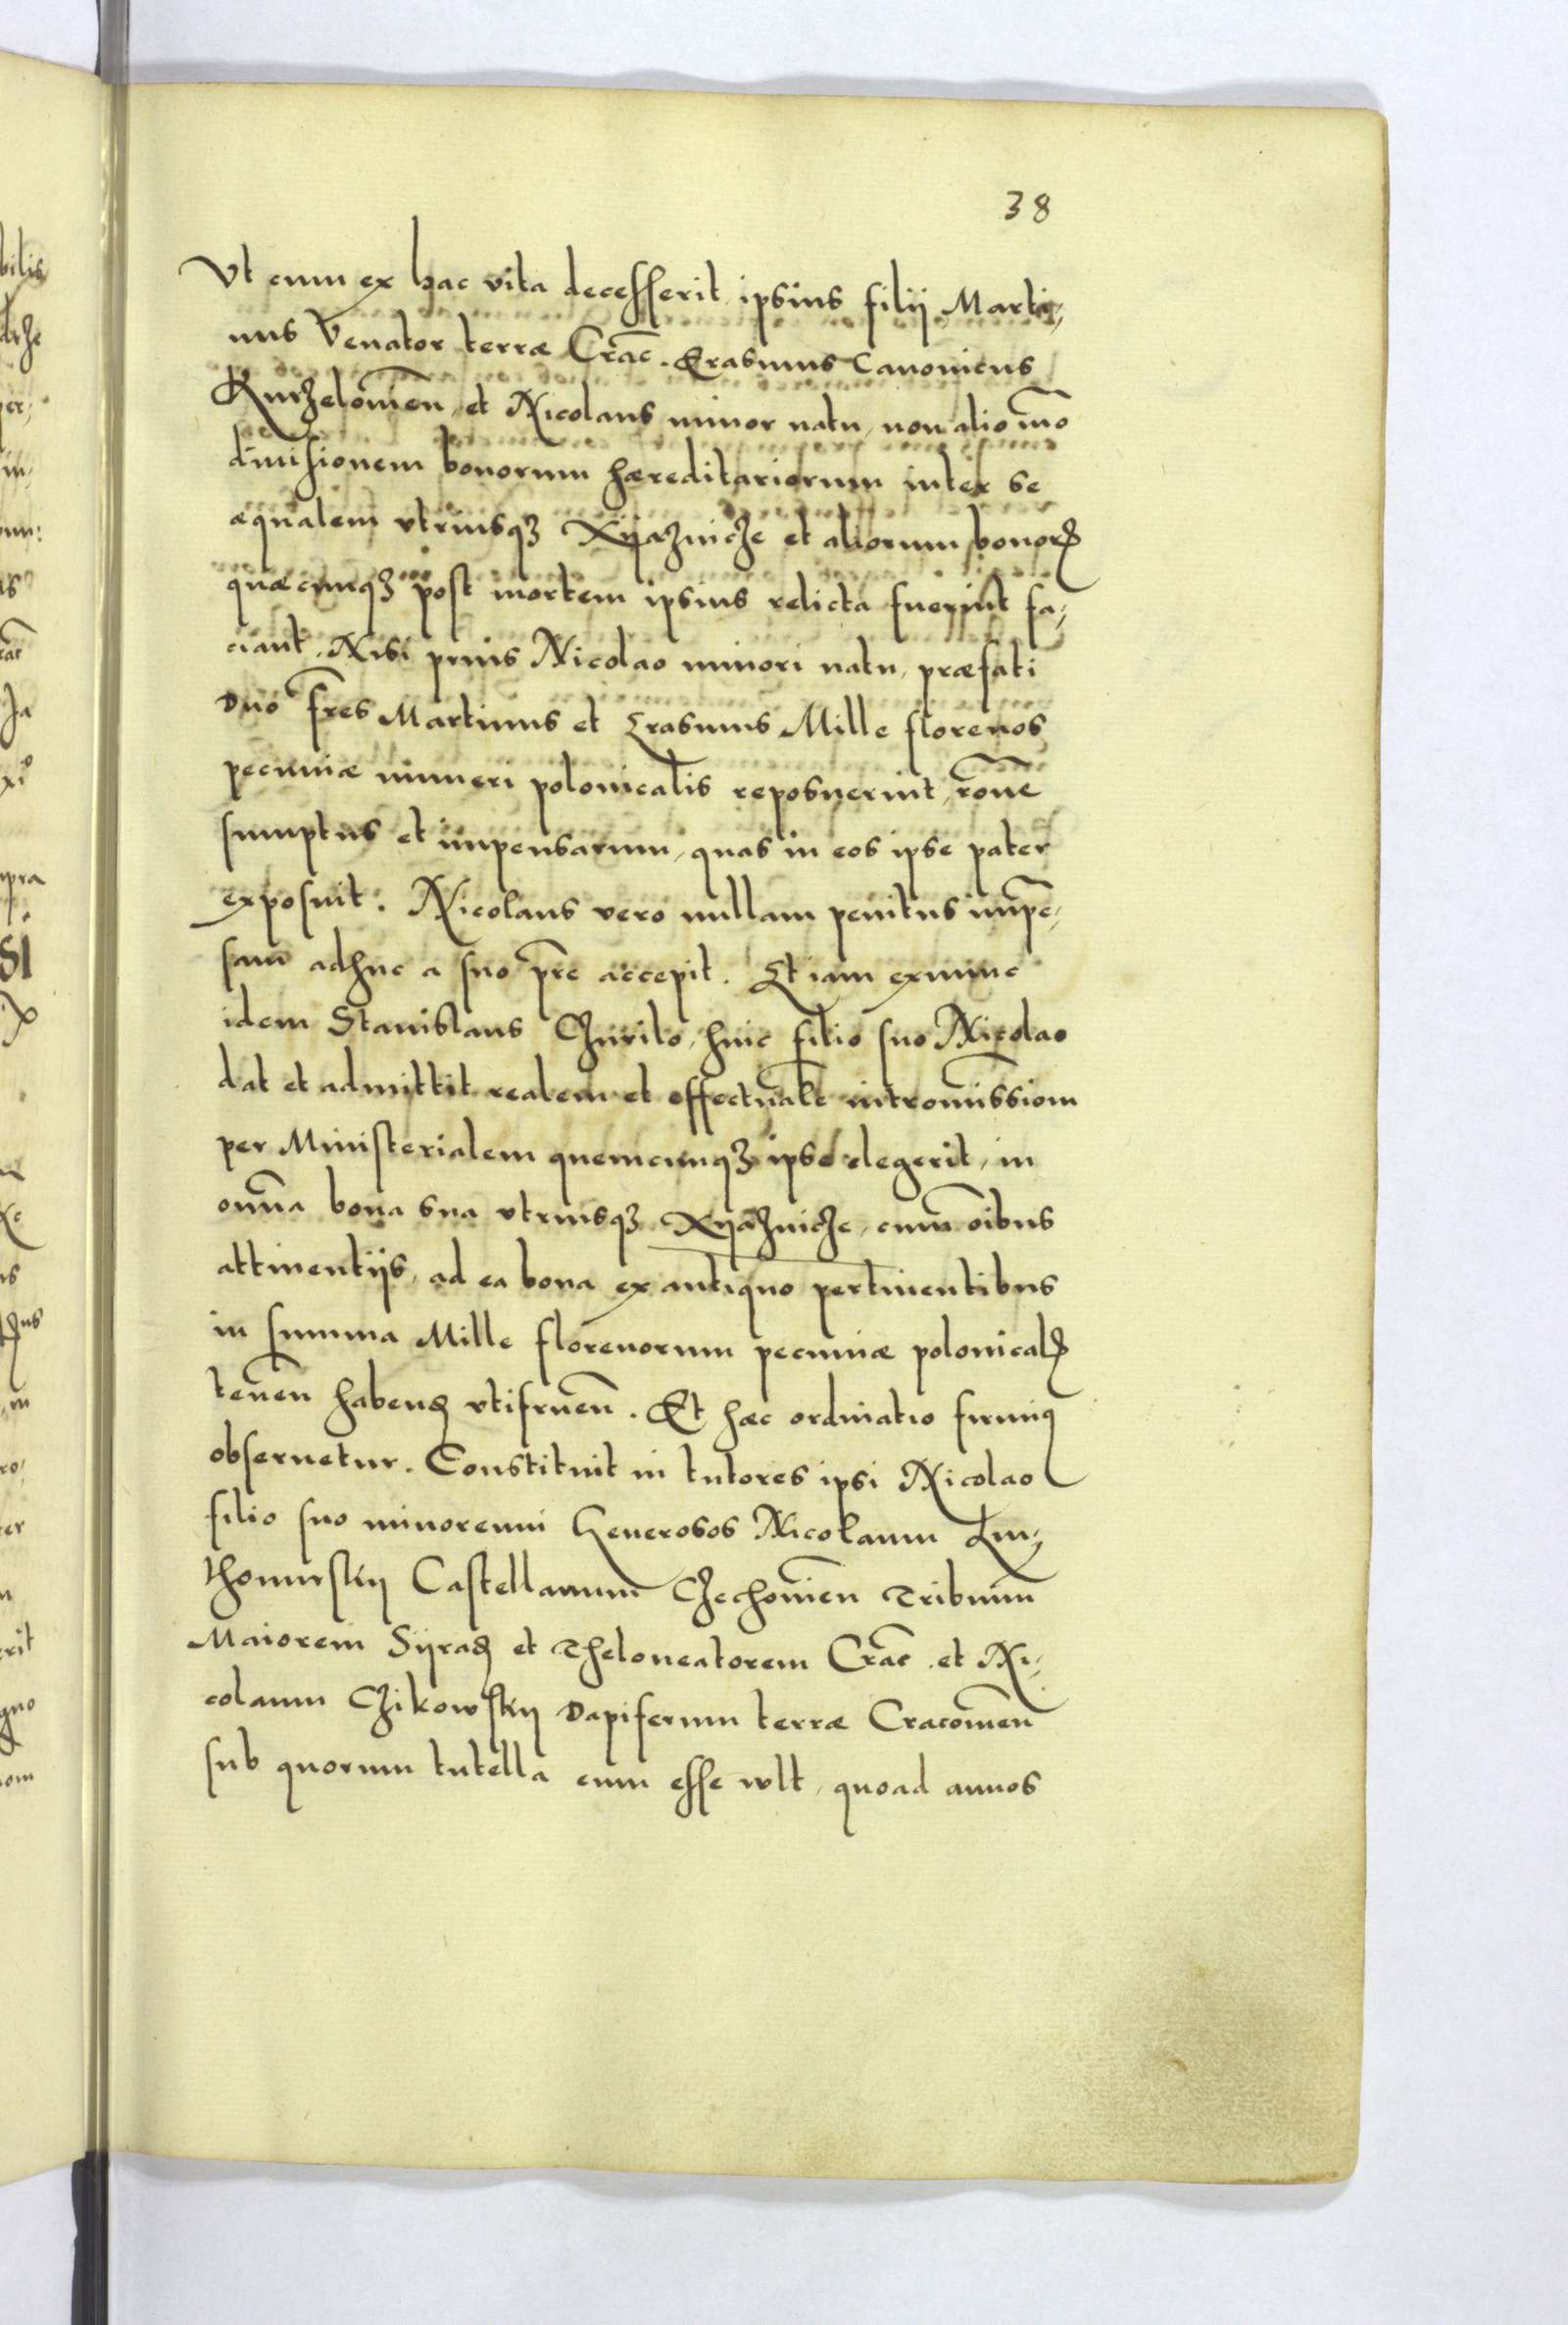 38
Vt cum ex hac vita decesserit, ipsius filij Marti,
nus Venator terræ Crac̄. Erasmus Canonicus
Kurzelouien̄, et Nicolaus minor natu, non alio mō
diuisionem bonorum hæreditariorum inter se
æqualem vtriusqꝫ Xyaznicze et aliorum bonorꝝ
quæcunqꝫ post mortem ipsius relicta fuerint fa,
ciant. Nisi prius Nicolao minori natu, præfati
Duo fr̄es Martinus et Erasmus Mille florenos
pecuniæ numeri polonicalis reposuerint, rōne
sumptus et impensarum, quas in eos ipse pater
exposuit. Nicolaus vero nullam penitus impē,
sam adhuc a suo pr̄e accepit. Et iam exnunc
idem Stanislaus Czurilo, huic filio suo Nicolao
dat et admittit realem et effectualē intromissiom
per Ministerialem quemcunqꝫ ipse elegerit, in
omn̄a bona sua vtriusqꝫ Xyaznicze, cum oībus
attinentijs, ad ea bona ex antiquo pertinentibus
in summa Mille florenorum pecuniæ polonicalꝭ
teneñ habenꝺ vtifrueñ. Et hæc ordinatio firmiꝰ
obseruetur. Constituit in tutores ipsi Nicolao
filio suo minorenni Generosos Nicolaum Lu,
thomirskij Castellanum Czechouien̄ Tribunū
Maiorem Syraꝺ et Theloneatorem Crac̄. et Ni,
colaum Czikowskij Dapiferum terræ Cracouien̄
sub quorum tutella eum esse wlt, quoad annos